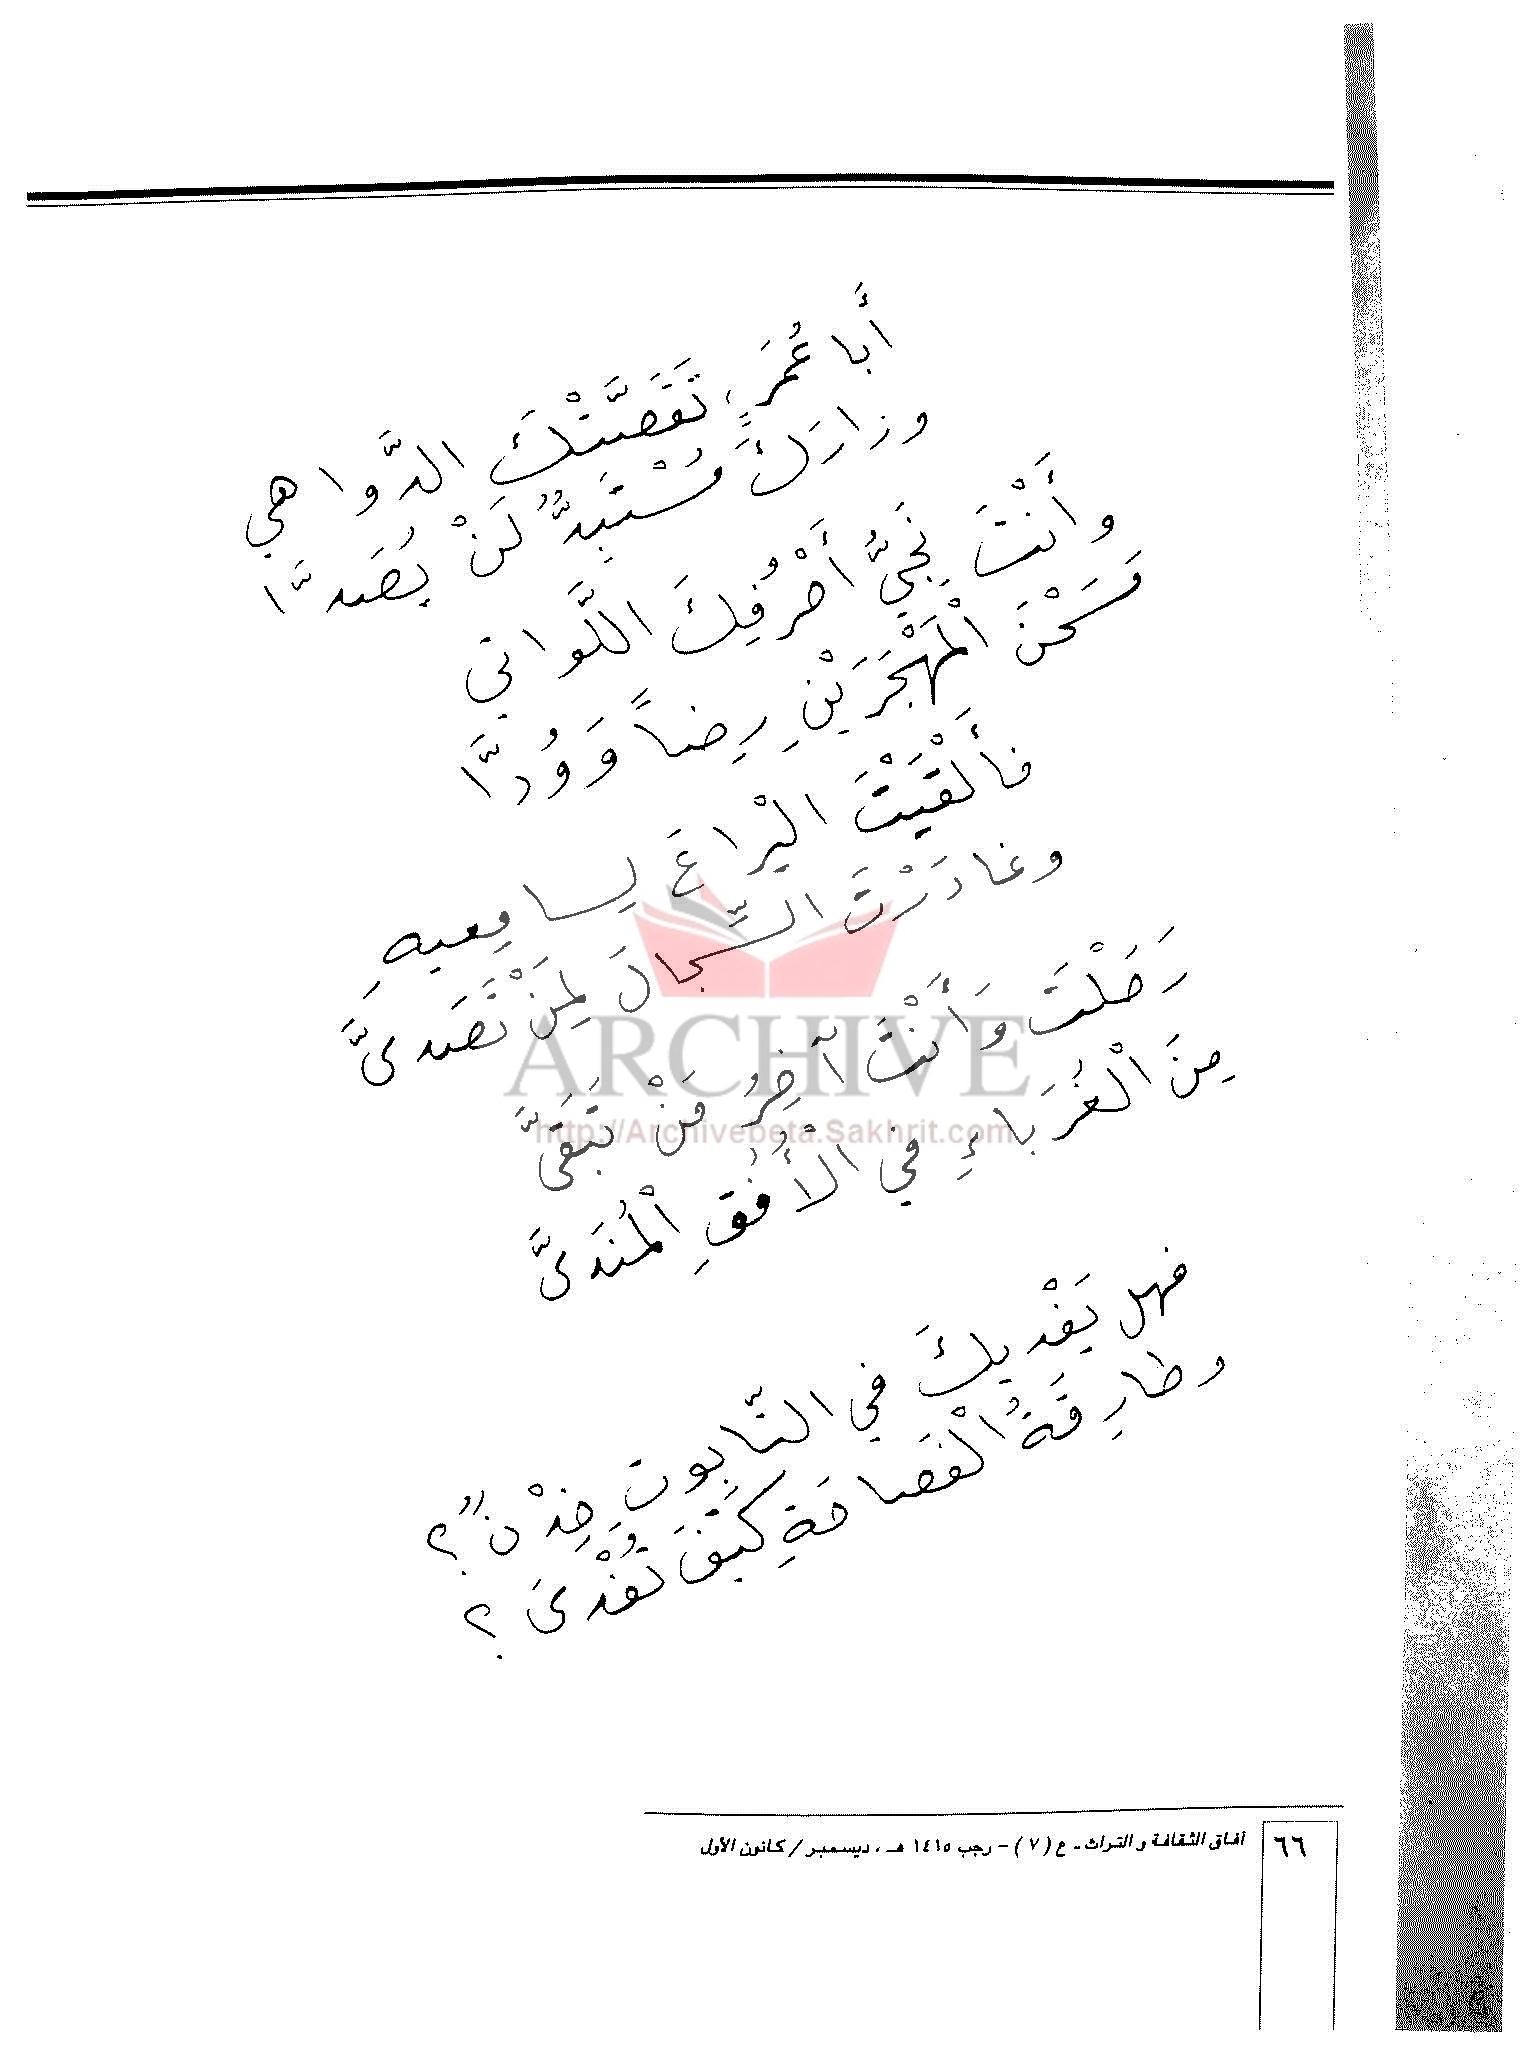 أَبا عُمَرٍ، تَقَصَّتْكَ الدَّواهي
وزارَكَ مُسْتَبِدٌّ لَنْ يُصَدَّا
وأَنْتَ نَجِيُّ أَحْرُفِكَ اللَّواتي
مَسَحْنَ الْمَهْجَرَيْنِ رِضاً وَوُدَّا
فأَلْقَيْتَ اليْراعَ لِسامِعيهِ
وغادَرْتَ السِّجالَ لِمَنْ تَصَدىَّ
رَحَلْتَ وَأَنْتَ آخِرُ مَنْ تَبَقَىَّ
مِنَ الْغُرَباءِ في الْأُفُقِ الْمُنَدىَّ
فهل يَفْديكَ في التّابوتِ خِدْنٌ؟
وطارِقَةُ الْفَصاحَةِ كَيْفَ تُفْدىَ؟
ARCHIVE
http://Archivebeta.Sakhrit.com
٦٦
آفاق الثقافة والتراث - ع (٧) - رجب ١٤١٥ هـ ، ديسمبر / كانون الأول